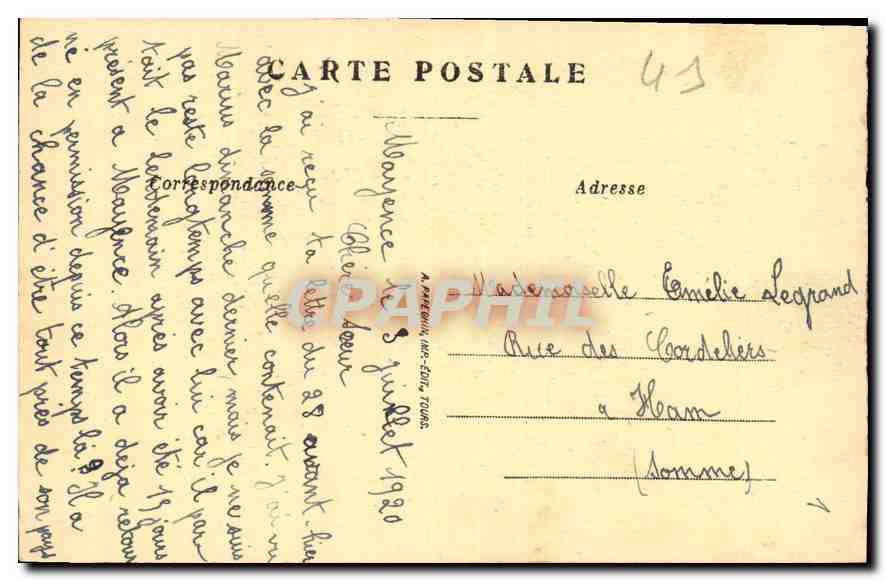 CARTE POSTALE
41
Correspondance
Adresse
Mayence le 3 juillet 1920
Chère Soeur
J'ai reçu ta lettre du 28 avant-hier
avec la somme qu'elle contenait. J'ai vu
Marius dimanche dernier, mais je ne suis
pas resté longtemps avec lui car il par-
tait le lendemain après avoir été 19 jours
présent a Mayence Alors il a déjà retour
né en permission depuis ce temps là? Il a
de la chance d'être tout près de son pays
A. PAPEGHIN, IMP.-ÉDIT., TOURS.
Mademoiselle Emélie Legrand
Rue des Cordeliers
a Ham
(Somme)
CPAPHIL